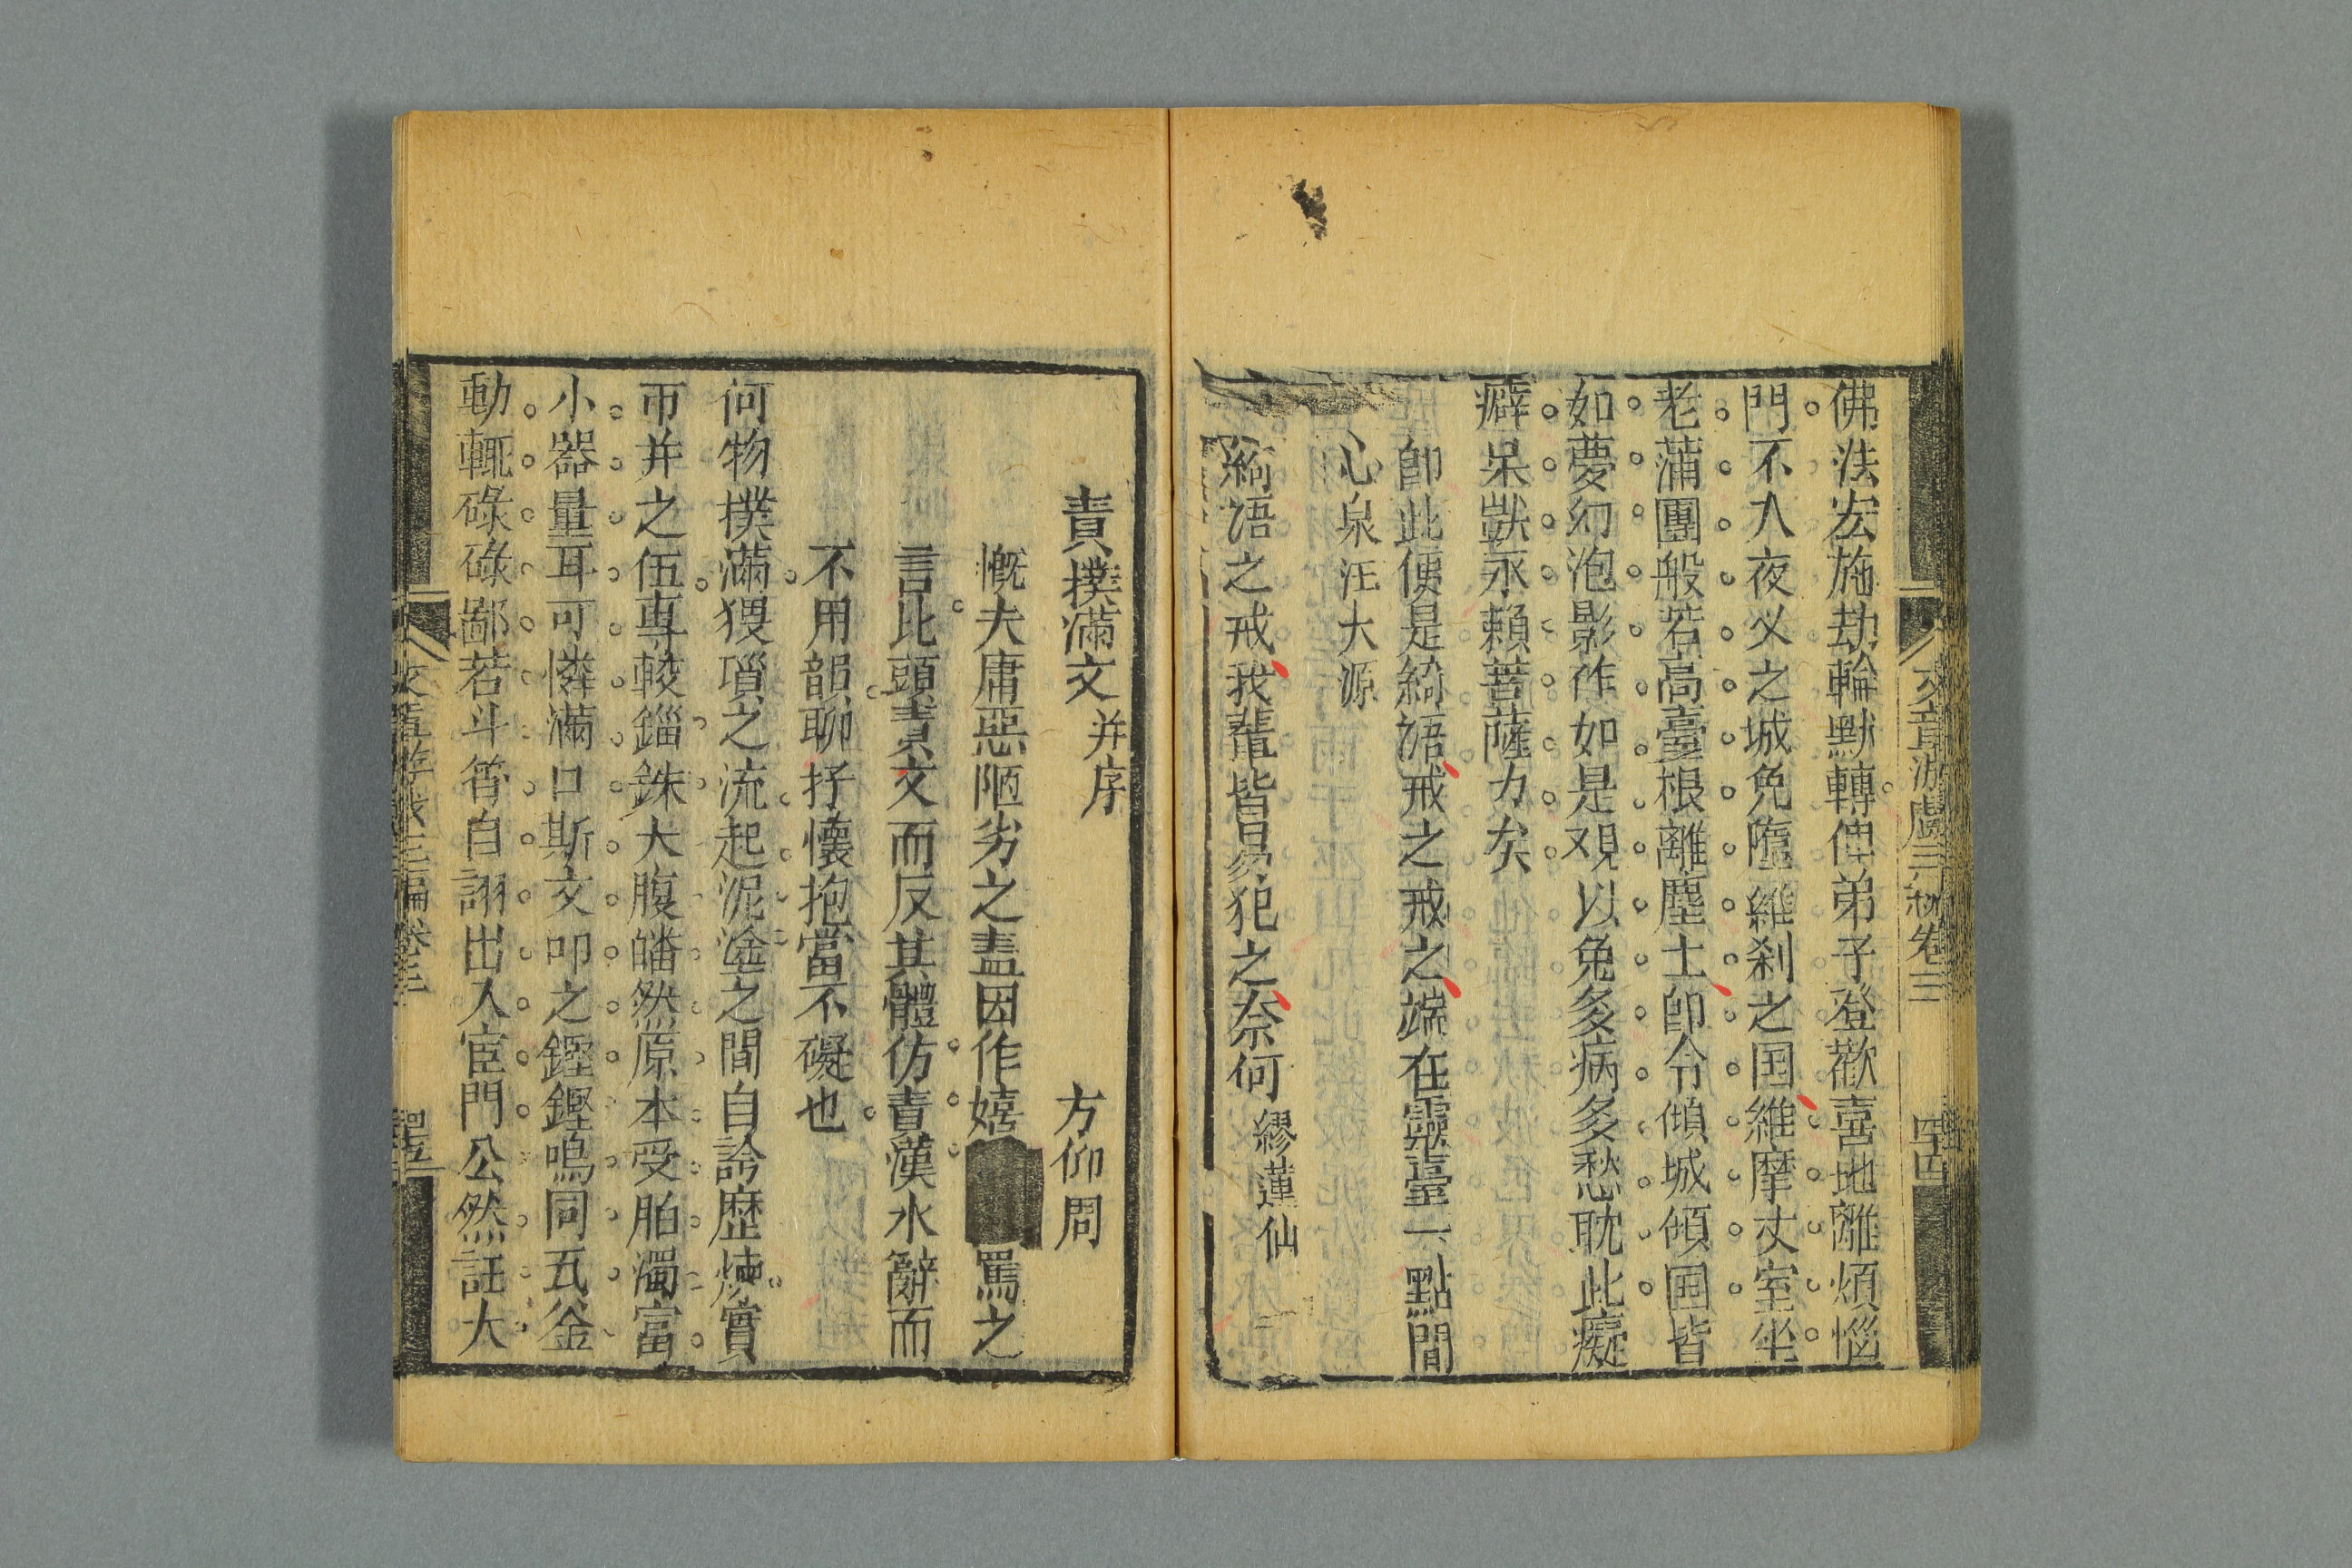 文章游戲三編卷三
四十四
佛法宏施劫輪默轉俾弟子登歡喜地離煩惱
門不入夜义之城免墮維剎之国維摩丈室坐
老蒲團般若高臺根離塵土即令傾城傾国皆
如夢幻泡影作如是观以免多病多愁耽此癡
癖呆獃永賴菩薩力矣
即此便是綺語戒之戒之端在靈臺一點間
心泉汪大源
綺語之戒我輩皆易犯之奈何 繆蓮仙
責撲滿文 并序
方仰周
慨夫庸惡陋劣之輩因作嬉 罵之
言比頭責文而反其體仿責漢水辭而
不用韻聊抒懷抱當不礙也
何物撲滿猥瑣之流起泥塗之間自誇歷煉實
帀并之伍專較錙銖大腹皤然原本受胎濁富
小器量耳可憐滿口斯文叩之鏗鏗鳴同瓦釜
動輒碌碌鄙若斗筲自詡出入宦門公然誆大
文章游戲三編卷三